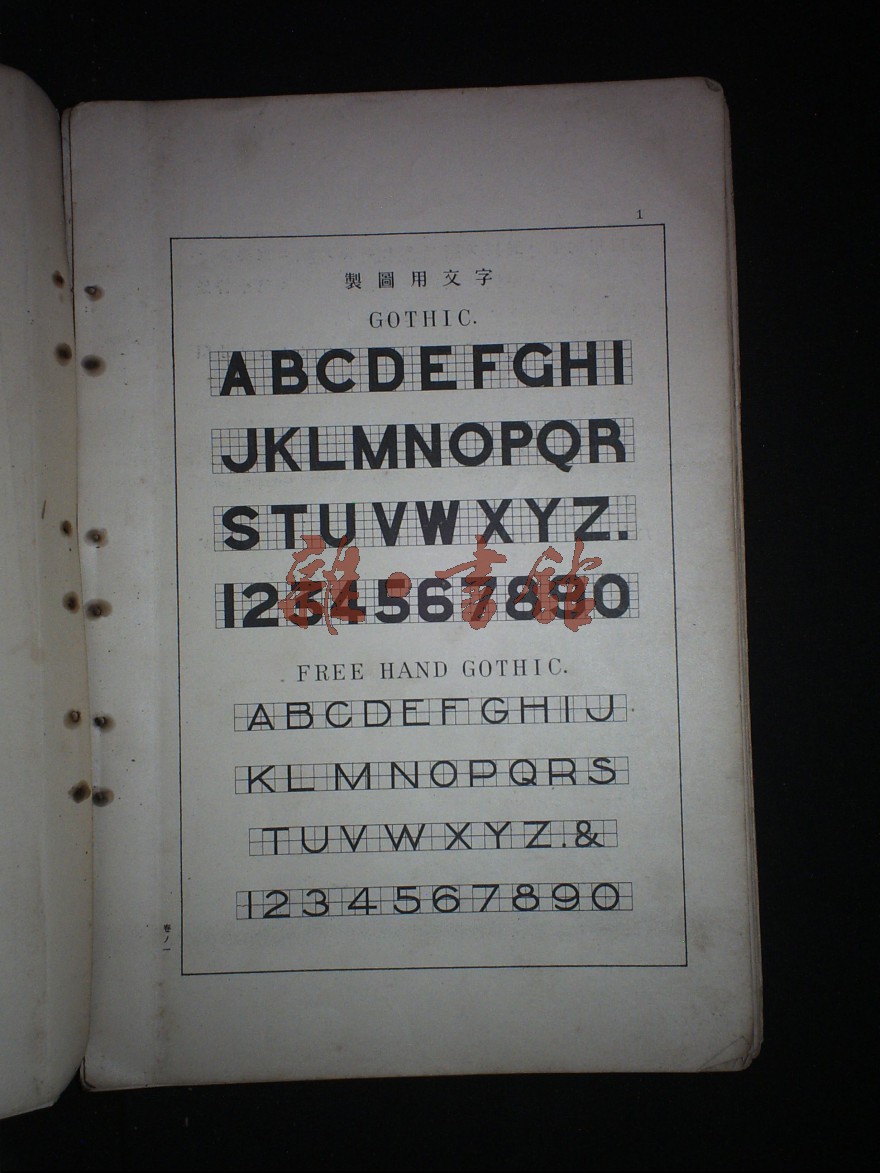 1
製圖用文字
GOTHIC.
ABCDEFGHI
JKLMNOPQR
STUVWXYZ.
1234567890
雜·書館
FREE HAND GOTHIC.
ABCDEFGHIJ
KLMNOPQRS
TUVWXYZ.&
1234567890
卷ノ一